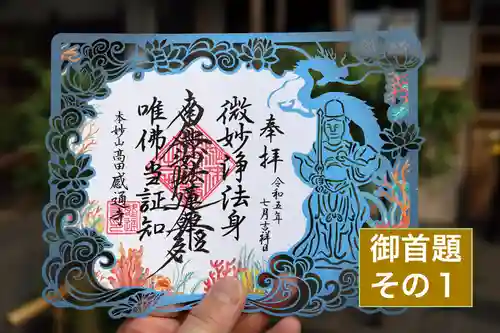 奉拝
令和五年
七月吉祥日
微妙浄法身
南無妙法蓮華経
唯佛当証知
本妙山髙田感通寺
御首題
その1